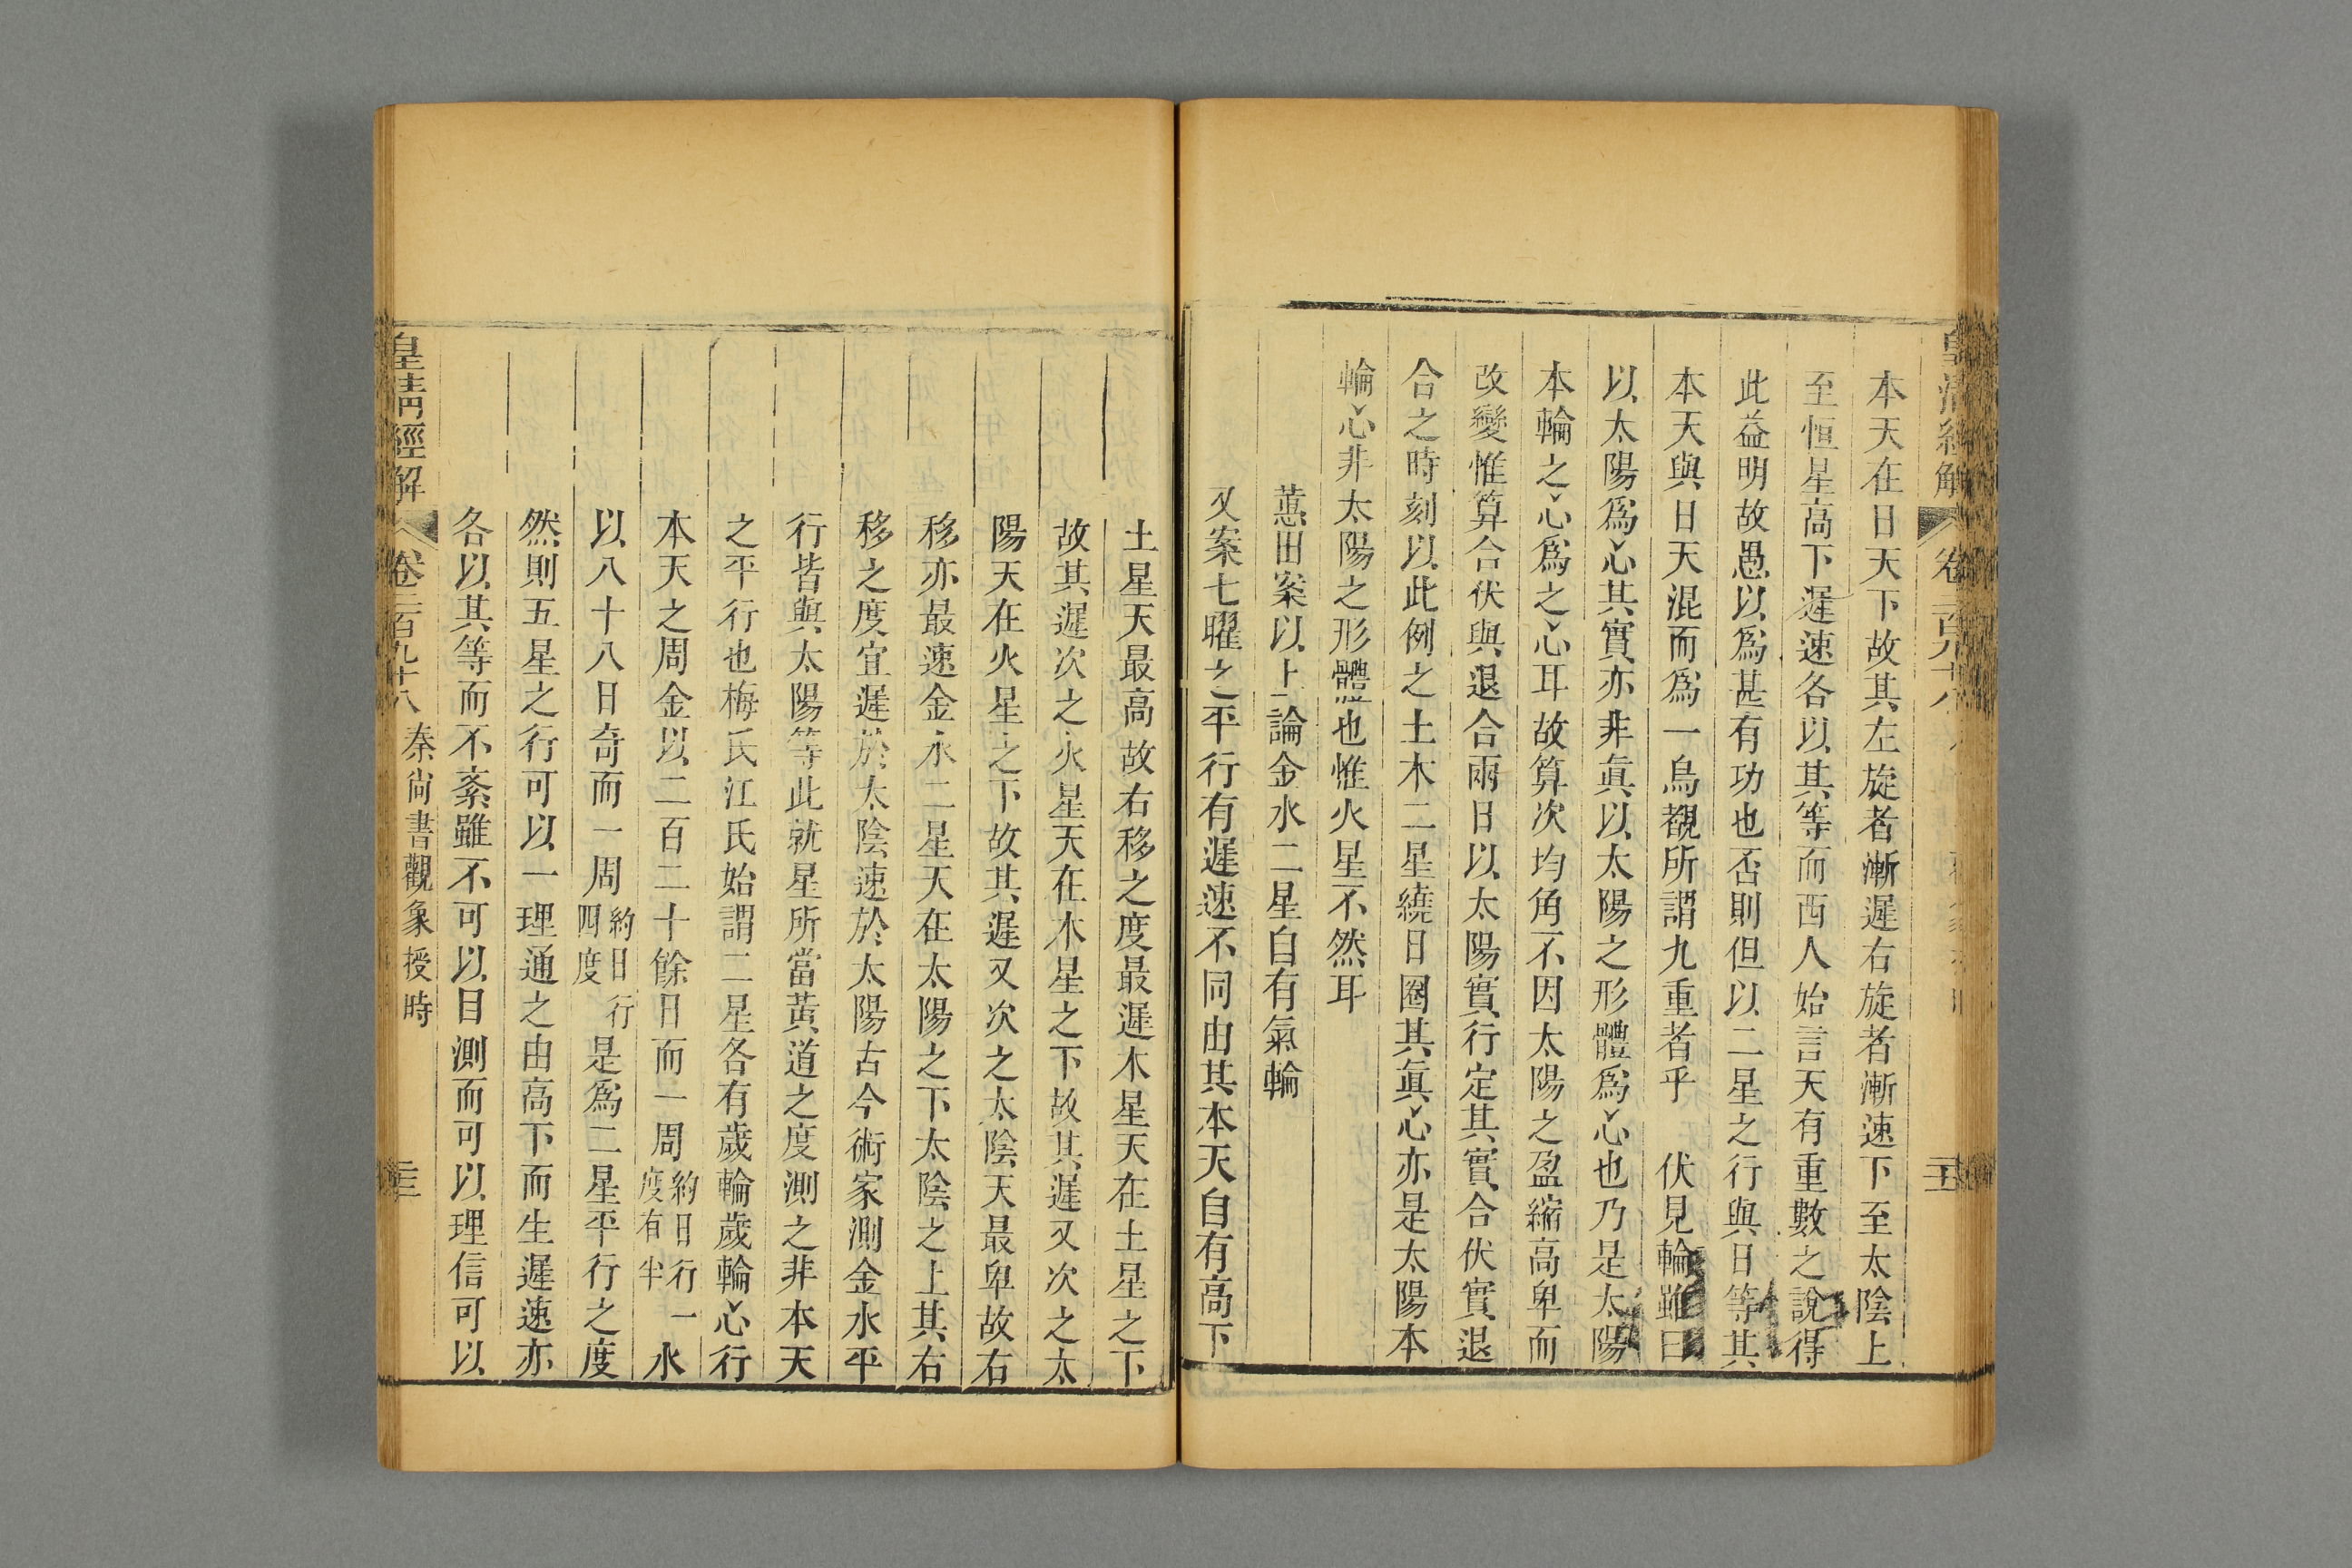 本天在日天下故其左旋者漸遲右旋者漸速下至太陰上
至恒星高下遲速各以其等而西人始言天有重數之說得
此益明故愚以爲甚有功也否則但以二星之行與日等其
本天與日天混而爲一烏覩所謂九重者乎　伏見輪雖曰
以太陽爲心其實亦非眞以太陽之形體爲心也乃是太陽
本輪之心爲之心耳故算次均角不因太陽之盈縮高卑而
改變惟算合伏與退合兩日以太陽實行定其實合伏實退
合之時刻以此例之土木二星繞日圈其眞心亦是太陽本
輪心非太陽之形體也惟火星不然耳
蕙田案以上論金水二星自有氣輪
又案七曜之平行有遲速不同由其本天自有高下
土星天最高故右移之度最遲木星天在土星之下
故其遲次之火星天在木星之下故其遲又次之太
陽天在火星之下故其遲又次之太陰天最卑故右
移亦最速金水二星天在太陽之下太陰之上其右
移之度宜遲於太陰速於太陽古今術家測金水平
行皆與太陽等此就星所當黃道之度測之非本天
之平行也梅氏江氏始謂二星各有歲輪歲輪心行
本天之周金以二百二十餘日而一周約日行一度有半水
以八十八日奇而一周約日行四度是爲二星平行之度
然則五星之行可以一理通之由高下而生遲速亦
各以其等而不紊雖不可以目測而可以理信可以
皇清經解
卷二百九十八
秦尚書觀象授時